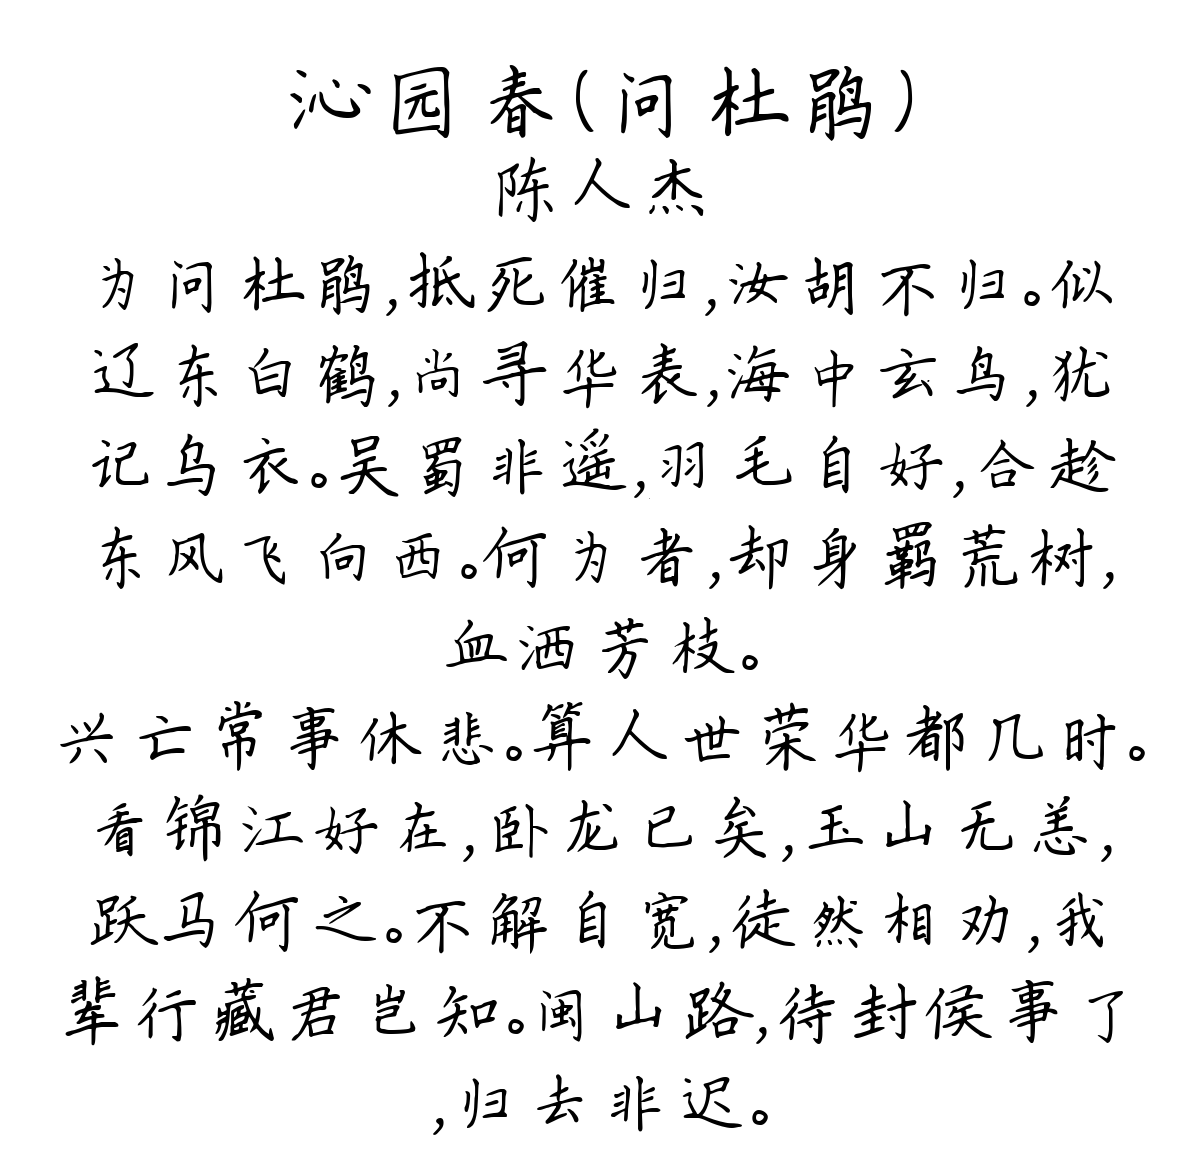 沁园春(问杜鹃)
陈人杰
为问杜鹃,抵死催归,汝胡不归。似
辽东白鹤,尚寻华表,海中玄鸟,犹
记乌衣。吴蜀非遥,羽毛自好,合趁
东风飞向西。何为者,却身羁荒树,
血洒芳枝。
兴亡常事休悲。算人世荣华都几时。
看锦江好在,卧龙已矣,玉山无恙,
跃马何之。不解自宽,徒然相劝,我
辈行藏君岂知。闽山路,待封侯事了
,归去非迟。